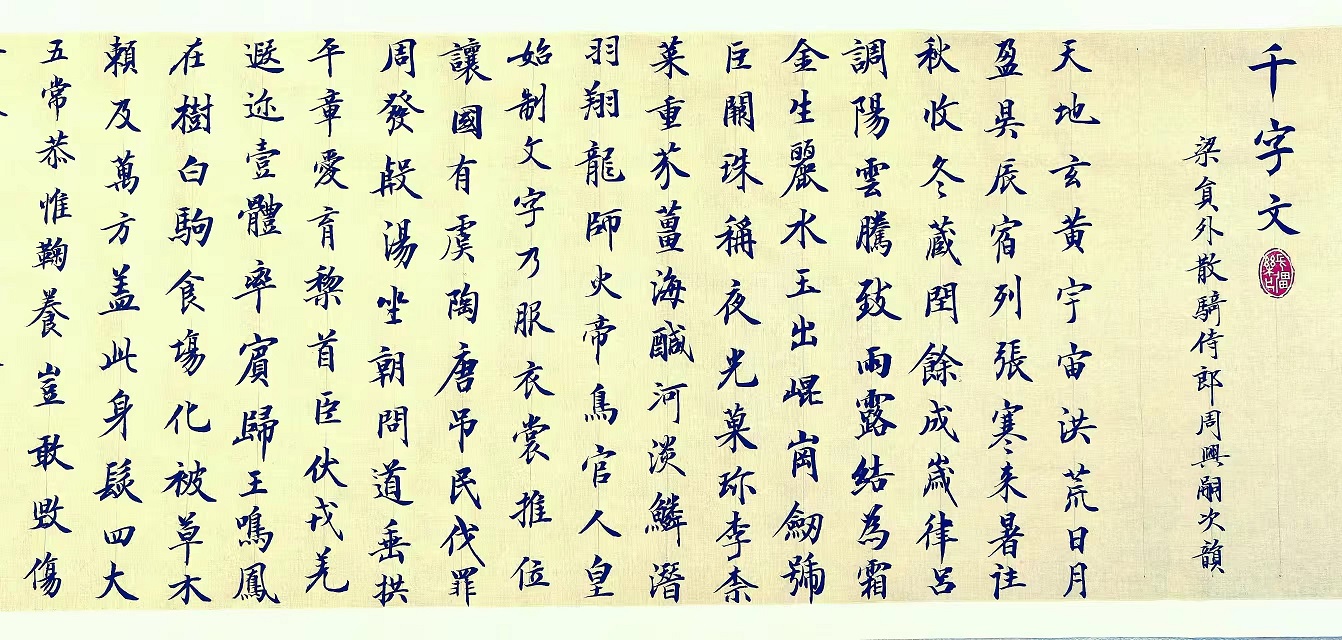 千字文
梁貟外散騎侍郎周興嗣次韻
天地玄黃宇宙洪荒日月
盈昃辰宿列張寒来暑往
秋收冬蔵閏餘成嵗律呂
調陽雲騰致雨露結為霜
金生麗水玉出崐崗劒號
巨闕珠稱夜光菓珎李柰
菜重芥薑海鹹河淡鱗潛
羽翔龍師火帝鳥官人皇
始制文字乃服衣裳推位
讓國有虞陶唐吊民伐罪
周發殷湯坐朝問道垂拱
平章愛育黎首臣伏戎羌
遐迩壹體率賓歸王鳴鳳
在樹白駒食場化被草木
賴及萬方盖此身髮四大
五常恭惟鞠養豈敢毀傷